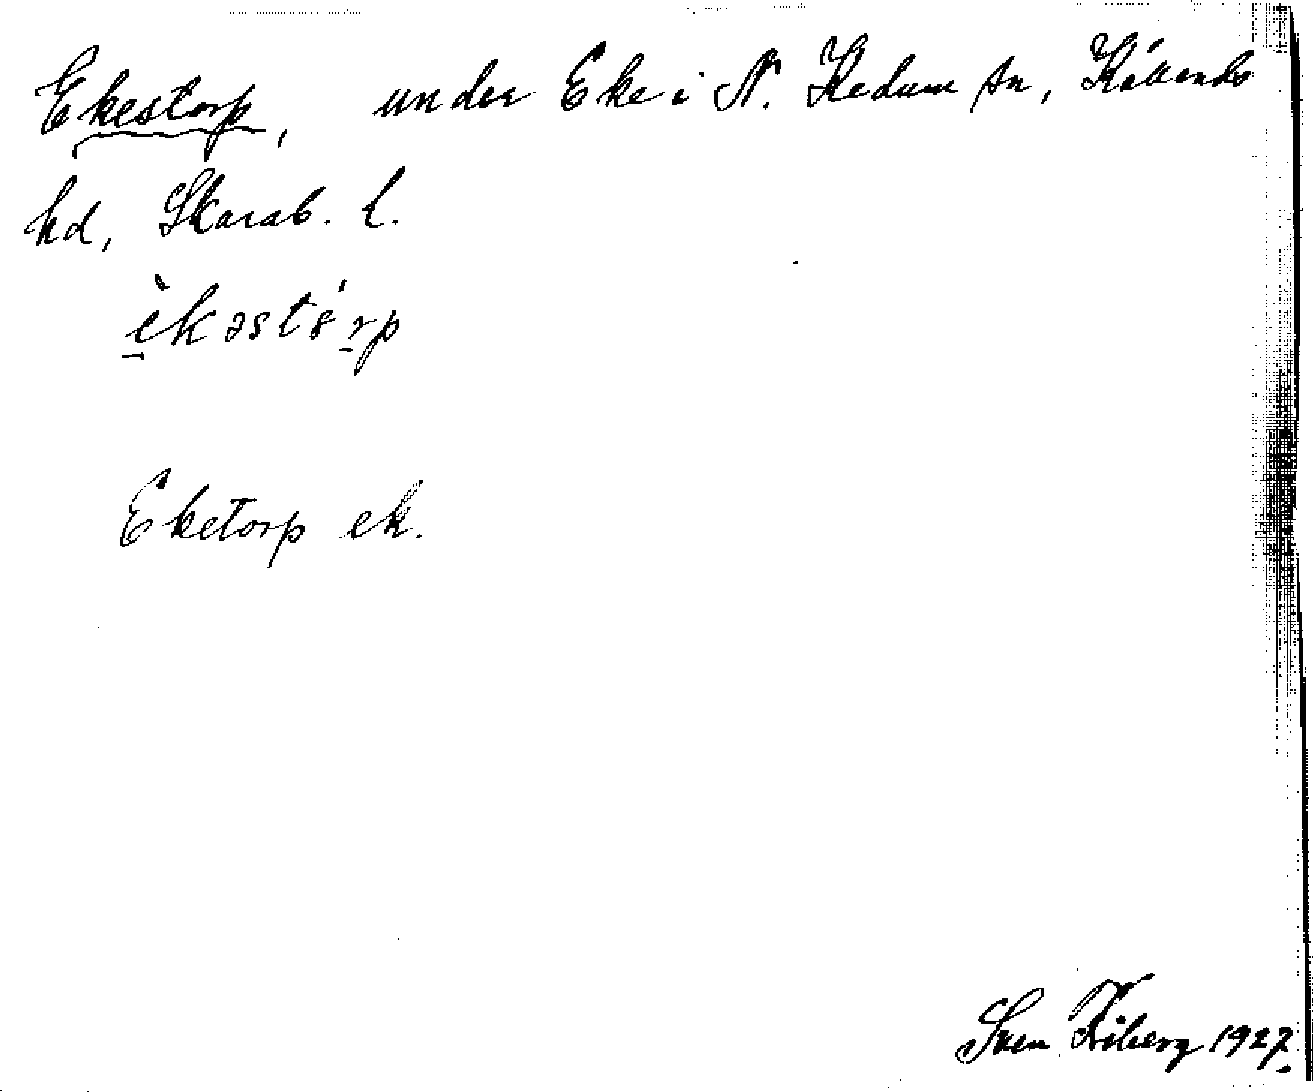 Ekestorp, under Eke i N. Kedum sn, Kållands
hd, Skarab. l.
èkəstó̀rp
Eketorp ek.
Sven Friberg 1927.